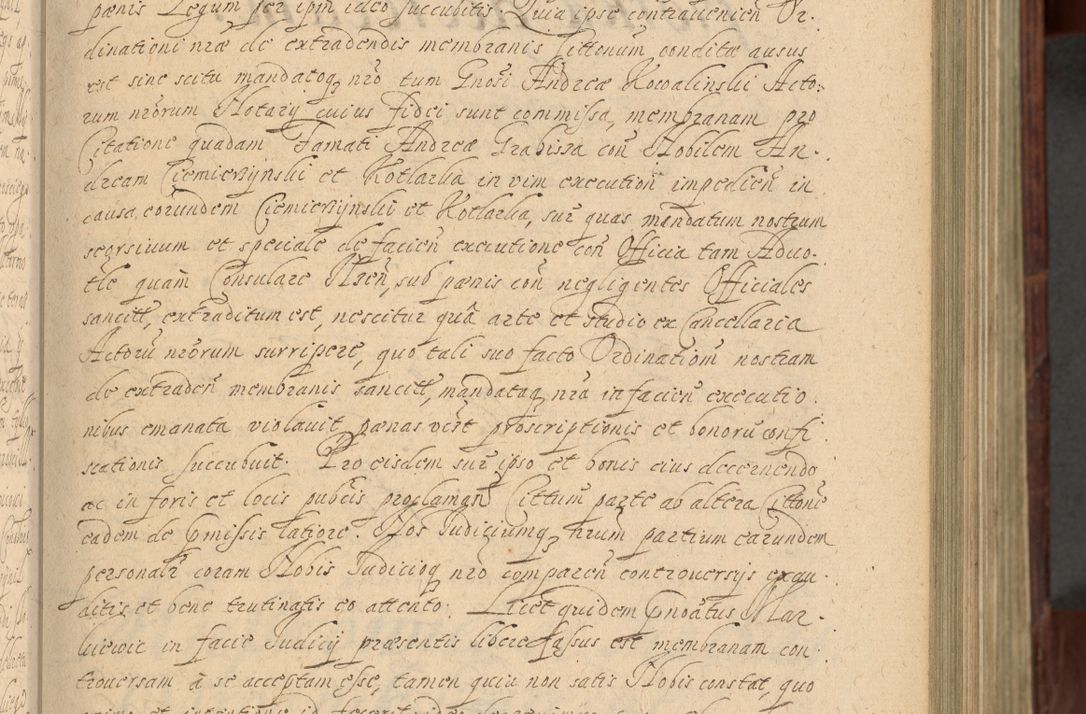 pænis Legum per ipm ideo succubitis. Quia ipse contravenien Or.
dinationi nræ de extradendis membranis Littenum, conditæ ausus
est sine scitu mandatoq nro tum Gnosi Andreæ Kowalinskii Acto:
rum nrorum Notarij cuius fidei sunt commissa, membranam pro
Citatione quadam Famati Andreæ Grabissa con Nobilem An.
dream Ciemierzijnskii et Kotlarka in vim execution impedien in
causa eorundem Ciemierzijnskii et Kotlarka, sur quas mandatum nostrum
seorsivum et speciale de facien executione con Officia tam Advo.
tle quam Consulare Usen, sub pænis con negligentes Officiales
sancitt, extraditum est, nescitur quâ arte et studio ex Cancellaria
Actoru nrorum surripere, quo tali suo facto Ordinationi nostram
de extraden membranis sancitt, mandataq nra in facien executio.
nibus emanata violavit pænas vert proscriptionis et bonoru confi.
scationis succubuit. Pro eisdem sur ipso et bonis eius decernendo
ac in foris et locis publis proclaman Cittum parte ab altera Cittone
eadem de pmissis latiore. Nos Judiciumq nrum partium earundem
personalr coram Nobis Judicioq nro comparen controversijs exau.
ditis et bene trutinatis eo attento. Licet quidem pnoatus Mar.
kiewic in facie Judicij præsentis libere fassus est membranam con.
troversam à se acceptam esse, tamen quia non satis Nobis constat, quo